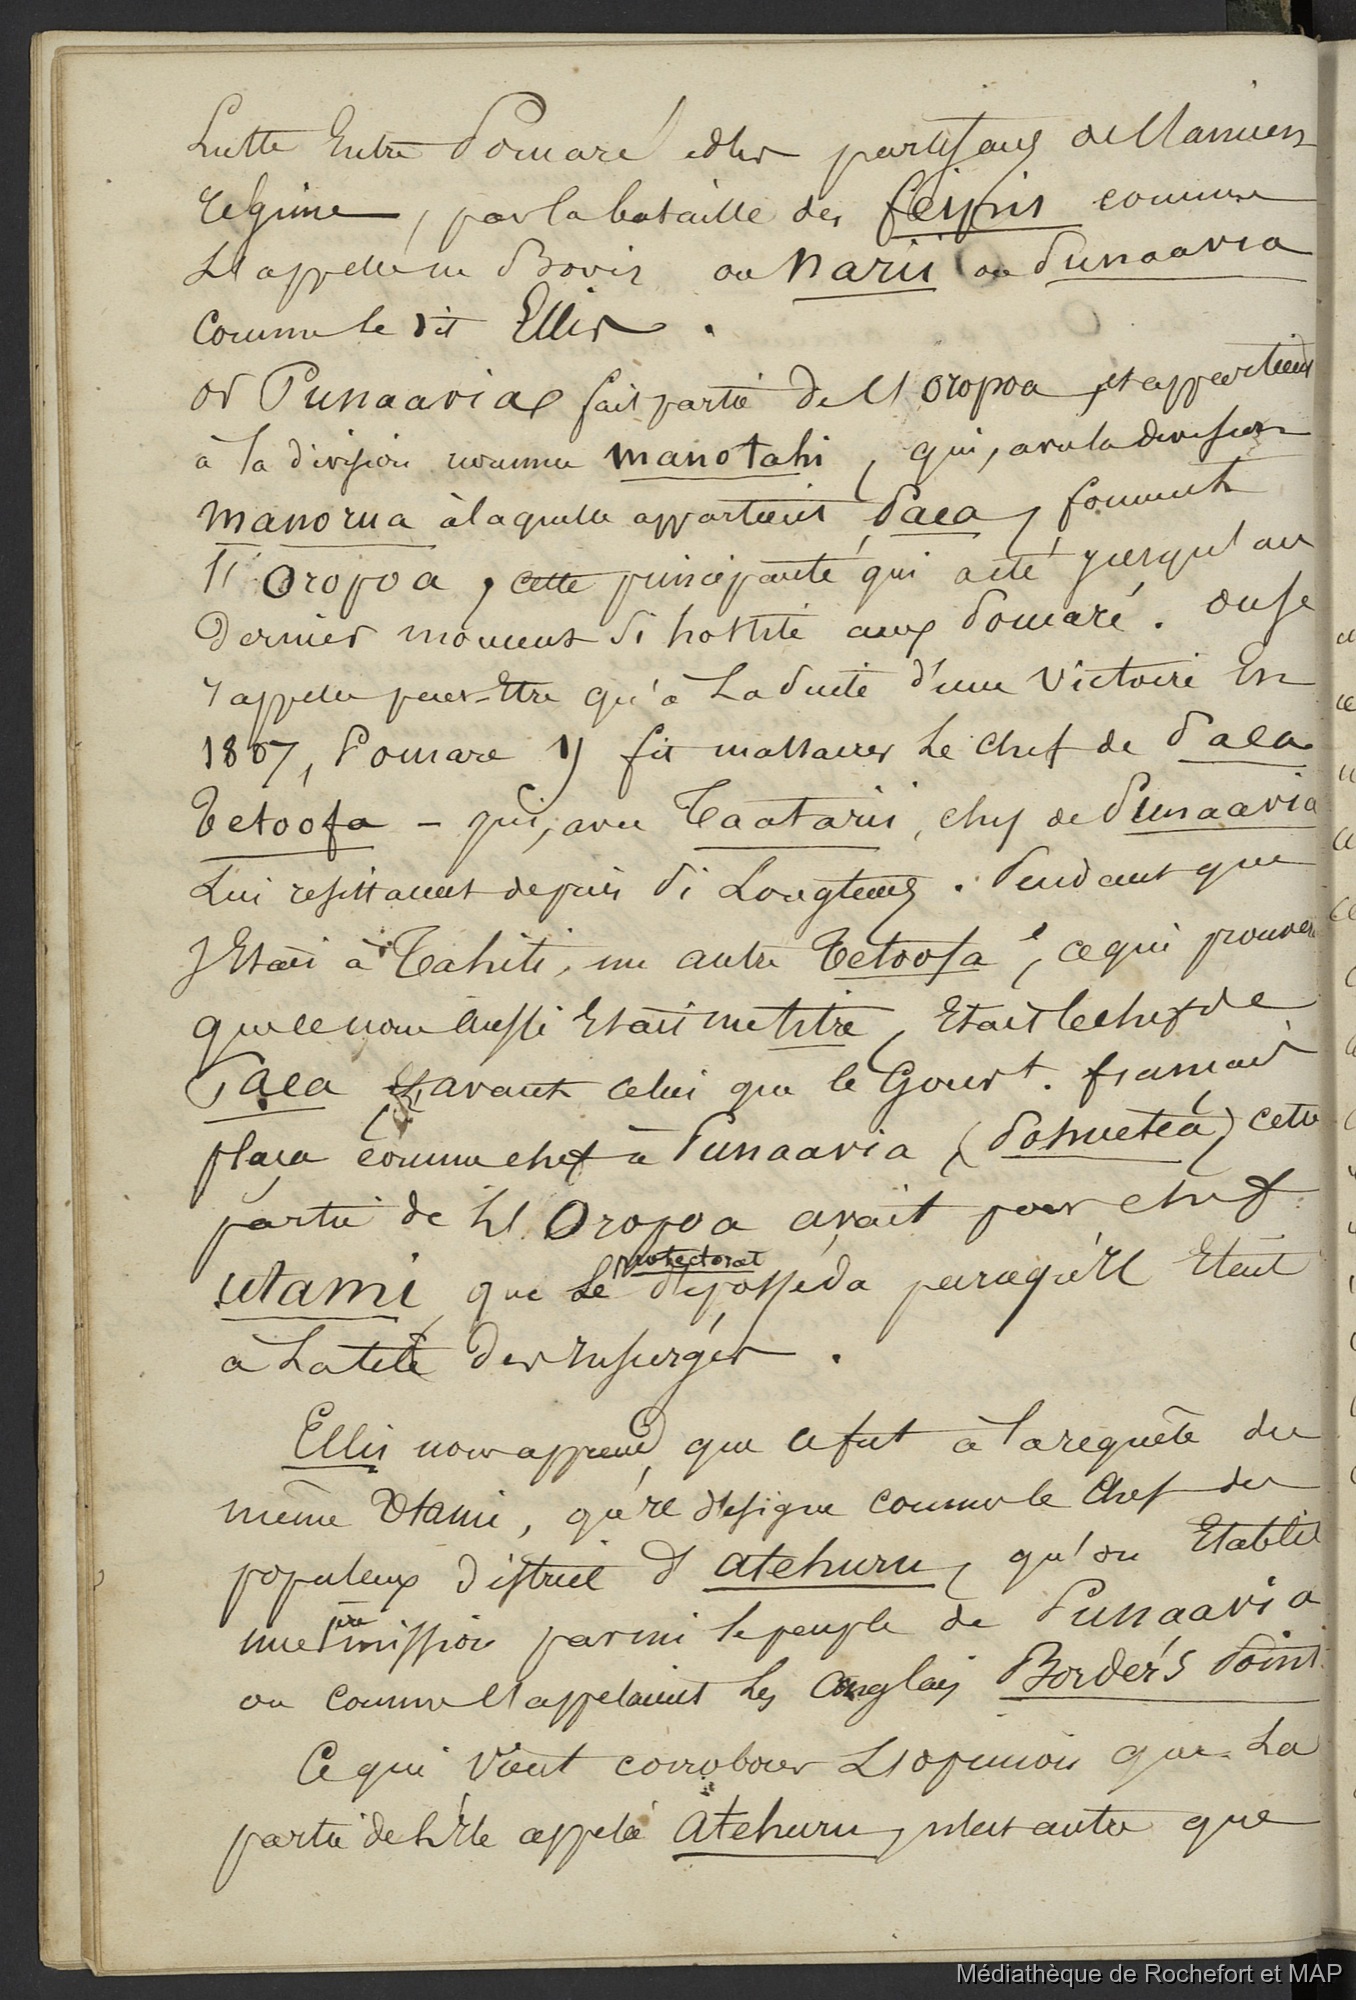 Lutte Entre Pomaré et les partisans de l'ancien
régime, par la bataille des feipiis comme
l'appelle M de Bovis ou Narii ou Punaavia
comme le dit Ellis.
or Punaavia fait partie de l'oropoa, et appartient
à la division nommée manotahi, qui, avec la division
manorua à laquelle appartient Paea, forment
l'Oropoa, cette principauté qui a été jusqu'au
dernier moment si hostile aux Pomaré. on se
rappelle peut-être qu'à la suite d'une victoire En
1807, Pomare y fit massacrer le chef de Paea
Tetoofa - qui, avec Taatarii, chef de Punaavia
lui resistaient depuis si longtemps. Pendant que
j'Etais à Tahiti, un autre Tetoofa, ce qui prouve
que ce nom aussi Etait un titre, Etait le chef de
Paea avant celui que le Gouvt. français
plaça comme chef à Punaavia (Pohueteá) cette
partie de l'Oropoa avait pour chef
utami, que le protectorat déposséda parcequ'il Etait
à la tête des Insurgés.
Ellis nous apprend, que ce fut à la requête du
même Utami, qu'il désigne comme le chef du
populeux district d'atehuru, qu'on Etablit
une 1ère mission parmi le peuple de Punaavia
ou comme l'appelaient les anglais Border's Point
Ce qui vient corroborer l'opinion que la
partie de l'île appelé Atehuru, n'est autre que
Médiathèque de Rochefort et MAP